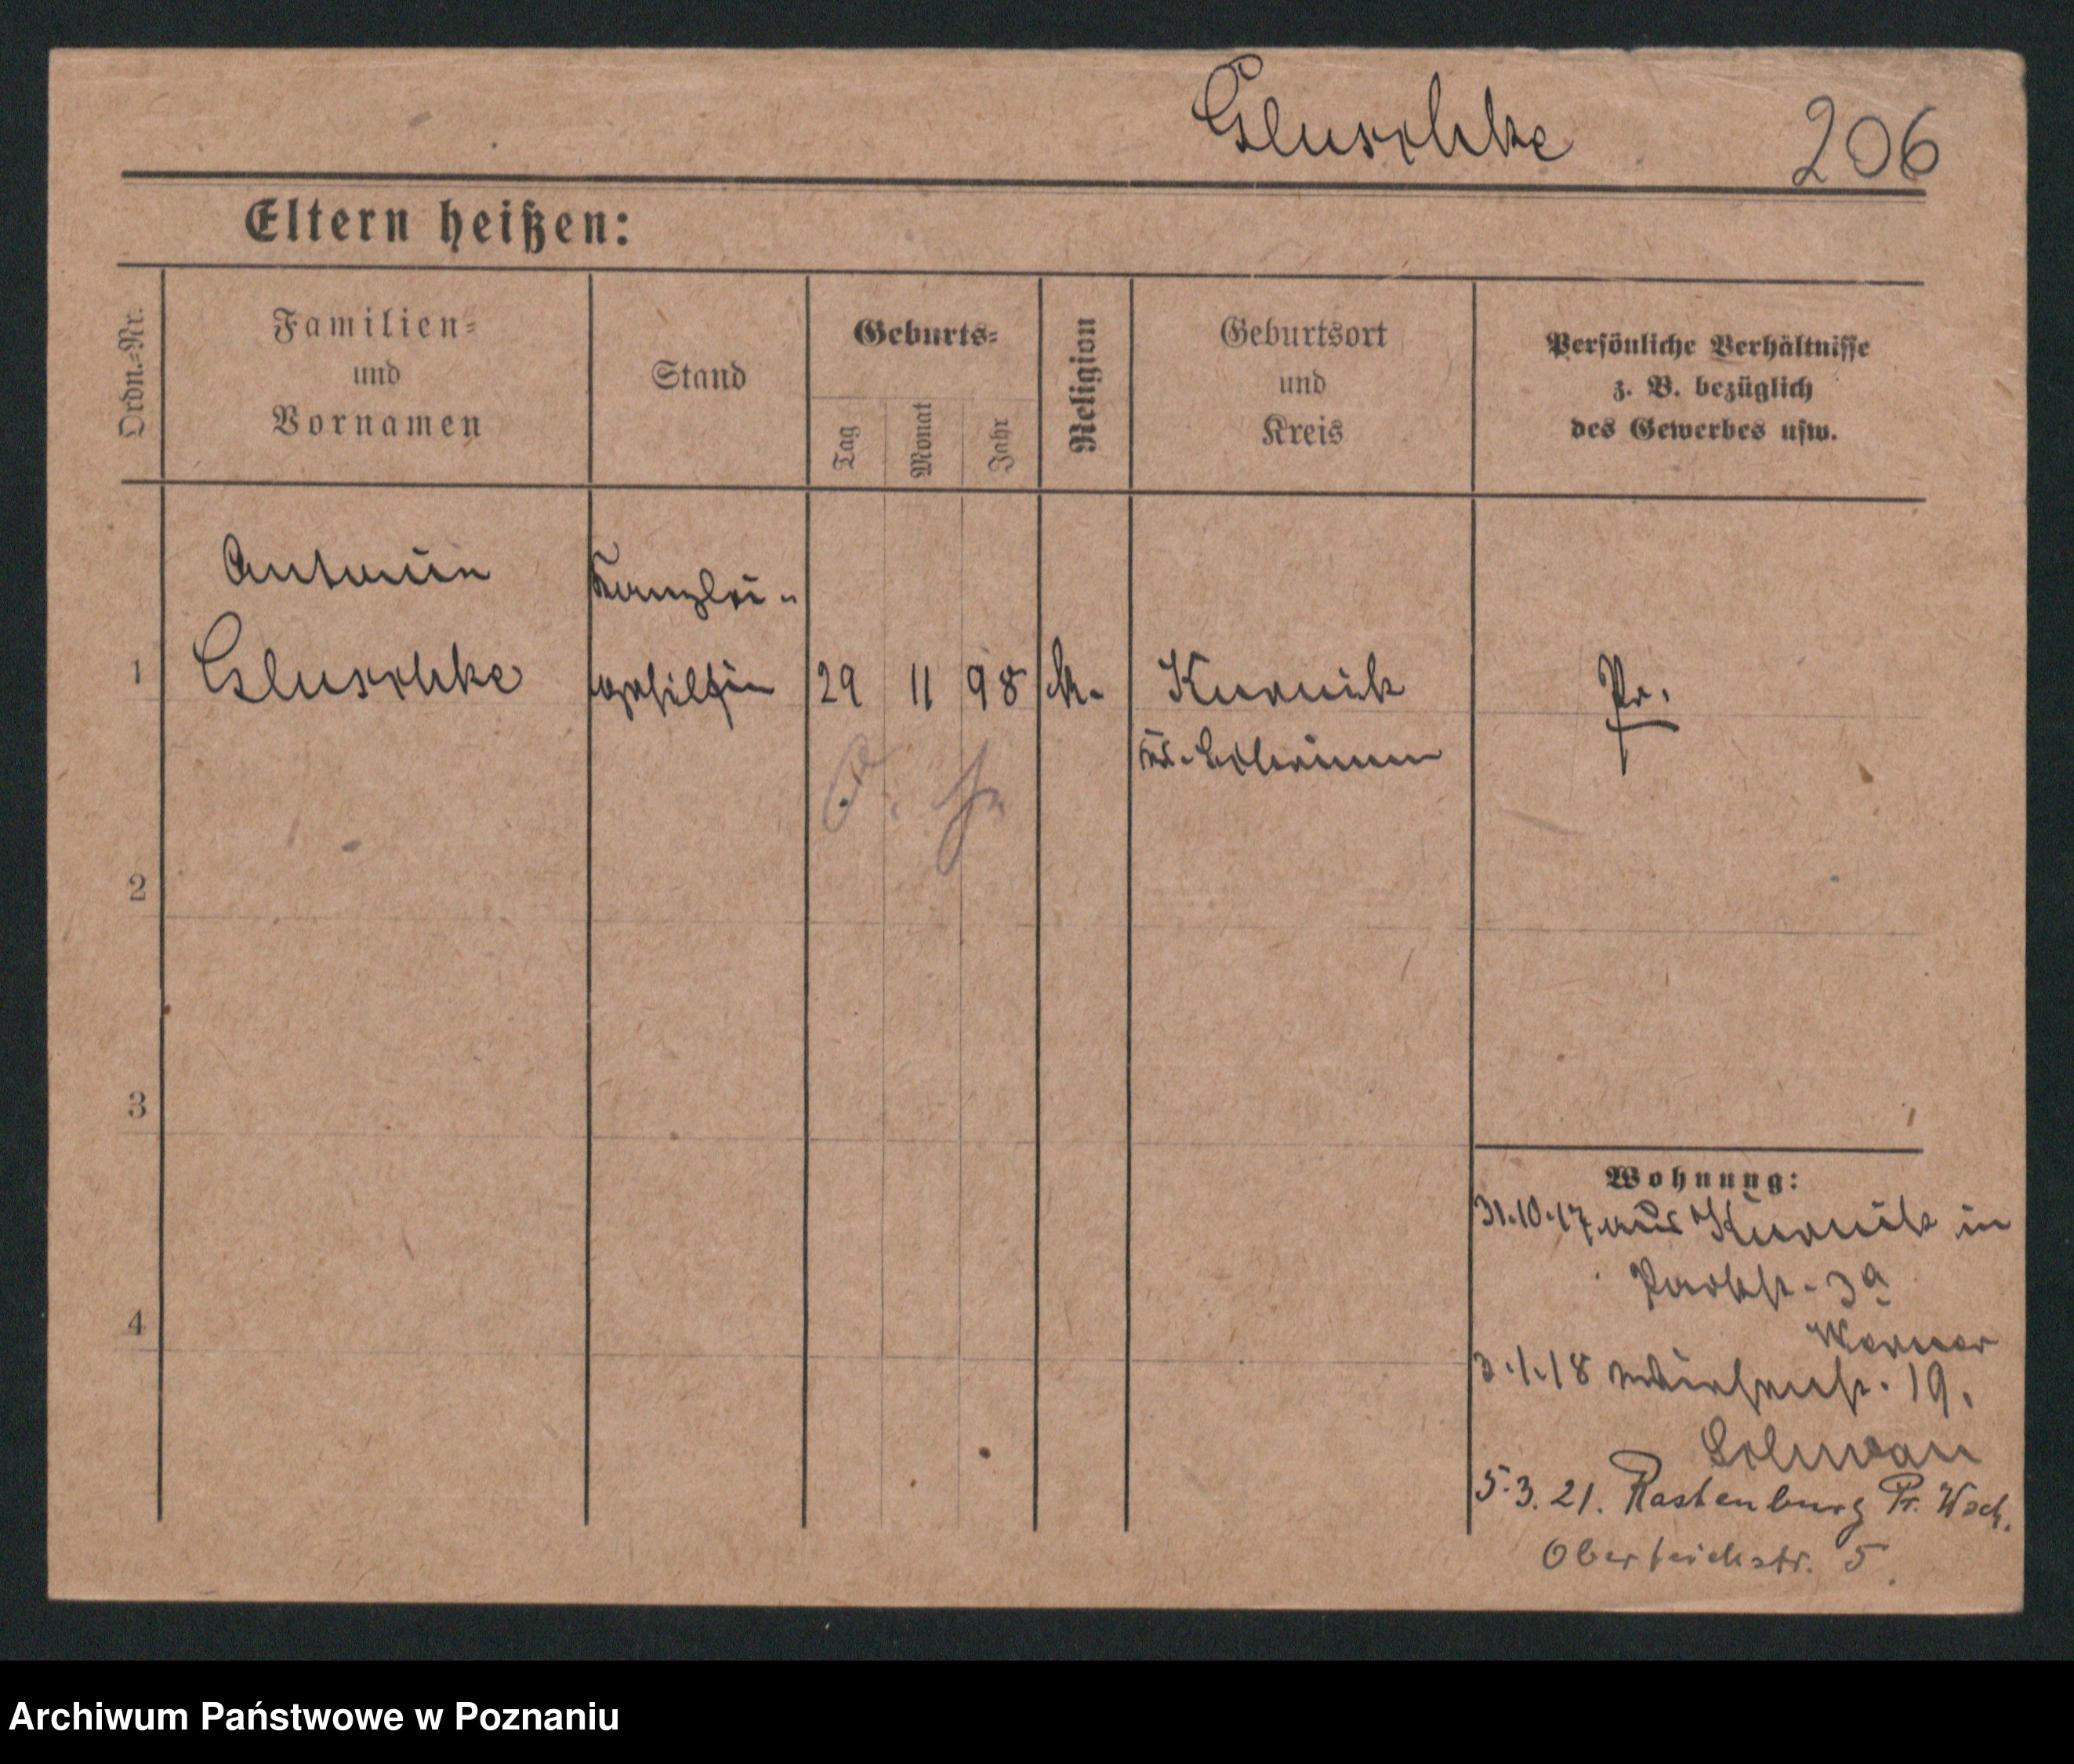 Gluschke 206
Eltern heißen:
Ordn.=Nr.
Familien=
und
Vornamen
Stand
Geburts=
Tag
Monat
Jahr
Religion
Geburtsort
und
Kreis
Persönliche Verhältnisse
z. B. bezüglich
des Gewerbes usw.
Kanzlei-
1 Gluschke gehilfin 29 11 98 k. Kurnik Pr.
Kr. Schrimm
2
3
4
Wohnung:
31.10.17 aus Kurnik in
Parkstr. 3a
3.1.18 19.
5.3.21. Rastenburg Pr.
Oberteichstr. 5
Archiwum Państwowe w Poznaniu